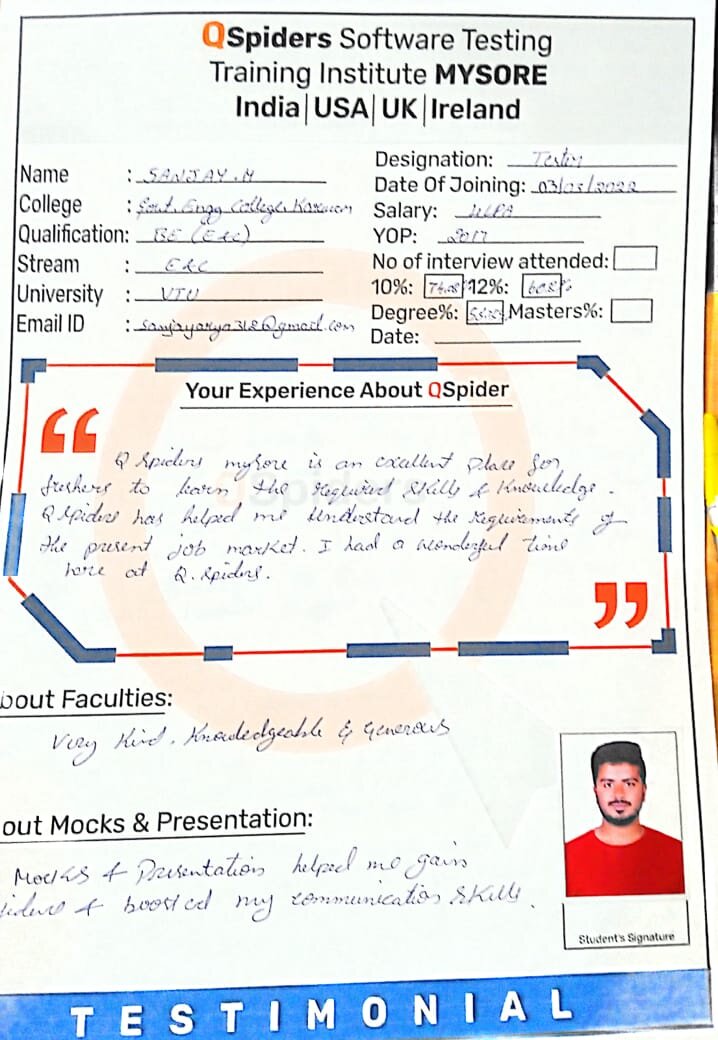 QSpiders Software Testing
Training Institute MYSORE
India|USA|UK|Ireland
Name : SANJAY.M
College : Govt. Engg College,
Qualification: BE (E&C)
Stream : E&C
University : VTU
Email ID : sanjayarya318@gmail.com
Designation: Tester
Date Of Joining: 03/03/2022
Salary:
YOP: 2017
No of interview attended:
10%: 12%:
Degree%: Masters%:
Date:
Your Experience About QSpider
“
Q Spiders mysore is an excellent place for
freshers to learn the required skills & Knowledge.
Q Spiders has helped me understand the requirements of
the present job market. I had a wonderful time
here at Q. Spiders.
”
QSpiders
bout Faculties:
Very Kind. Knowledgeable & Generous
out Mocks & Presentation:
Mocks & Presentation helped me gain
& boosted my communication skills.
Student's Signature
TESTIMONIAL